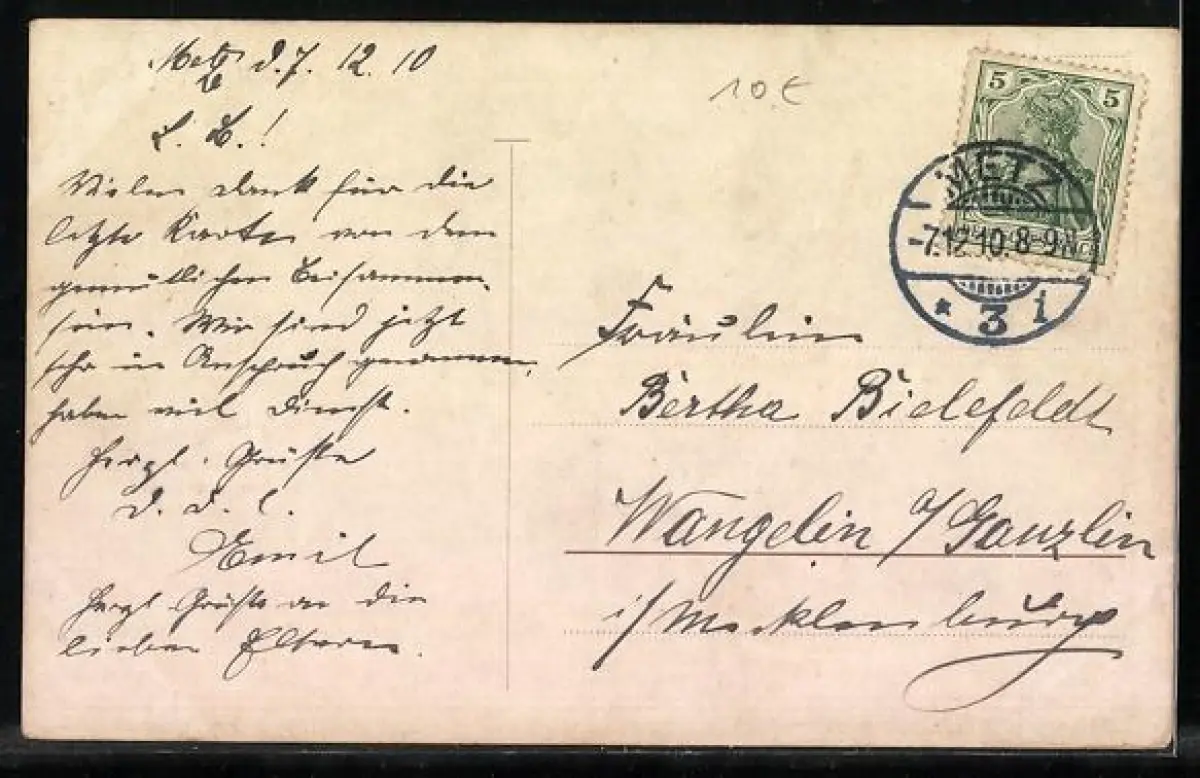 Metz d. 7. 12. 10
L. B.!
Vielen Dank für die
letzte Karte von dem
gemütlichen Beisammen-
sein. Wir sind jetzt
sehr in Anspruch genommen,
haben viel Dienst.
Herzl. Grüße
D. D. l.
Emil
Herzl. Grüße an die
lieben Eltern.
10 €
5 5
METZ
-7.12.10. 8-9 N
* 3 i
Fräulein
Bertha Bielefeldt
Wangelin a/Ganzlin
i/Mecklenburg